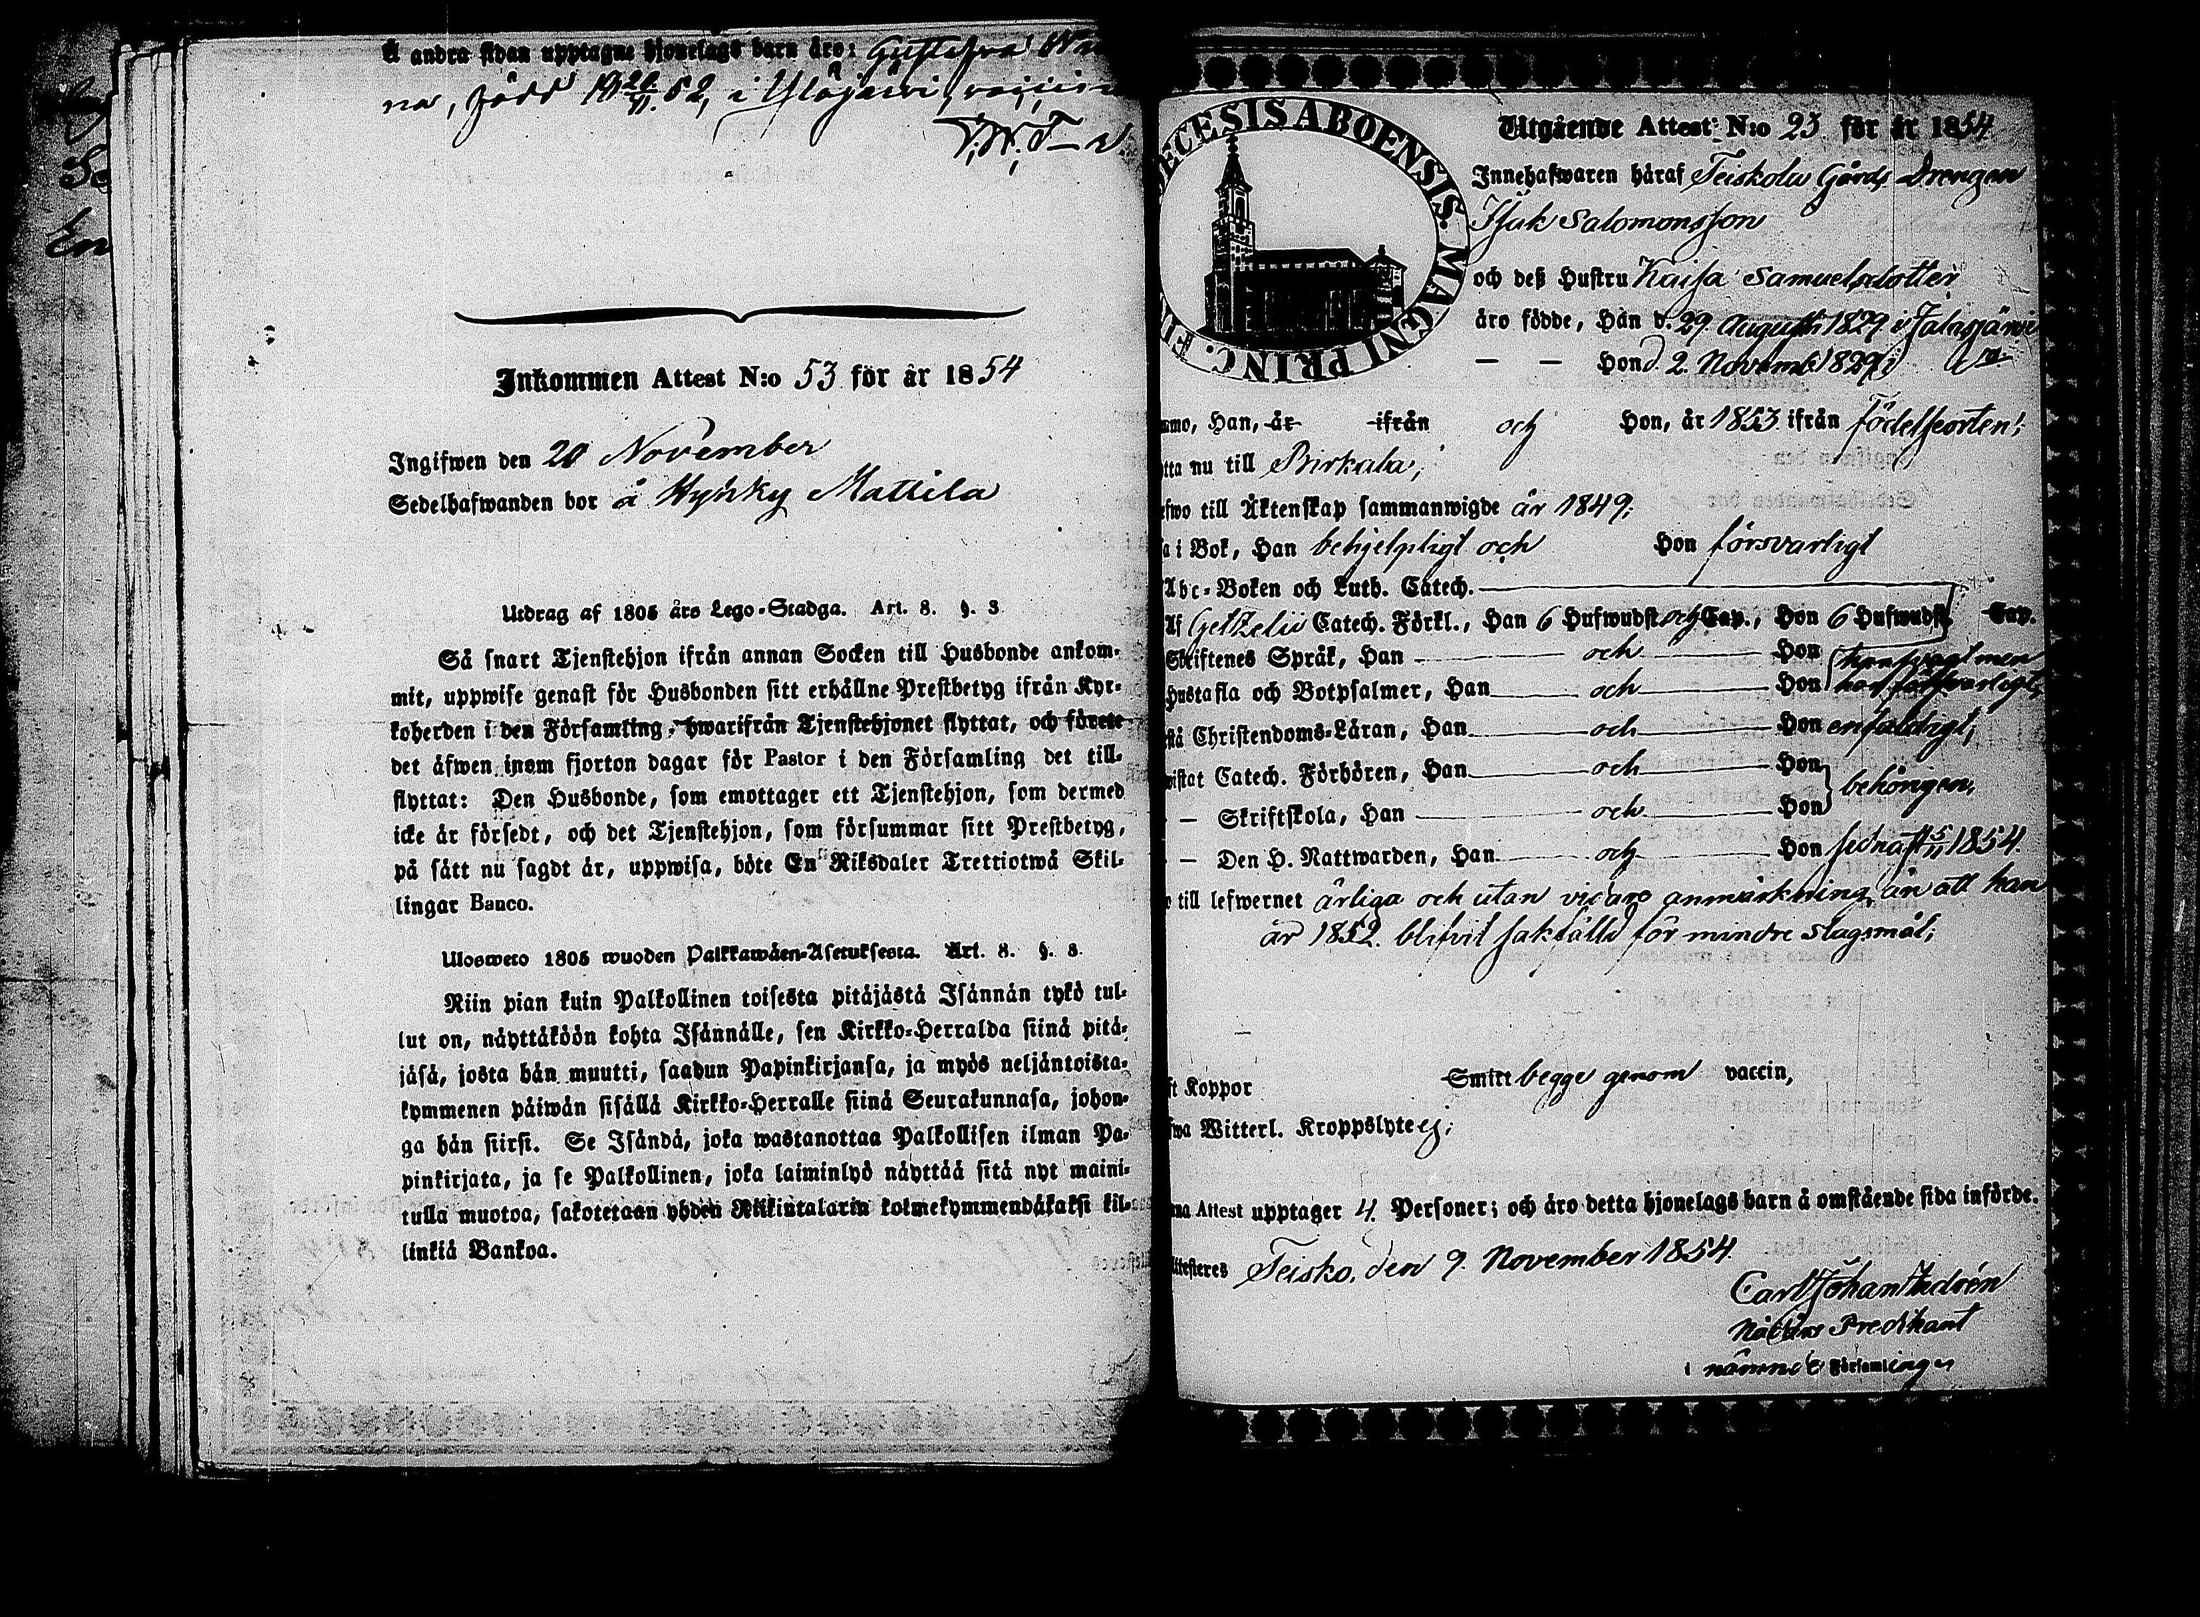 Å andra sidan upptagne hjonelags barn äro: Gustafva
na, född d. 26/11. 52, i Ylöjärvi,
Inkommen Attest N:o 53 för år 1854
Ingifwen den 20 November
Sedelhafwanden bor å Hyhky Mattila
Utdrag af 1805 års Lego-Stadga. Art. 8. §. 3
Så snart Tjenstehjon ifrån annan Socken till Husbonde ankom-
mit, uppwise genast för Husbonden sitt erhållne Prestbetyg ifrån Kyr-
koherden i den Församling, hwarifrån Tjenstehjonet flyttat, och förete
det äfwen inom fjorton dagar för Pastor i den Församling det till-
flyttat: Den Husbonde, som emottager ett Tjenstehjon, som dermed
icke är försedt, och det Tjenstehjon, som försummar sitt Prestbetyg,
på sätt nu sagdt är, uppwisa, böte En Riksdaler Trettiotwå Skil-
lingar Banco.
Ulosweto 1805 wuoden Palkkawäen-Asetuksesta. Art. 8. §. 3.
Niin pian kuin Palkollinen toisesta pitäjästä Isännän tykö tul-
lut on, näyttäköön kohta Isännälle, sen Kirkko-Herralda siinä pitä-
jäsä, josta hän muutti, saadun Papinkirjansa, ja myös neljäntoista-
kymmenen päiwän sisällä Kirkko-Herralle siinä Seurakunnasa, johon-
ga hän siirsi. Se Isändä, joka wastanottaa Palkollisen ilman Pa-
pinkirjata, ja se Palkollinen, joka laiminlyö näyttää sitä nyt maini-
tulla muotoa, sakotetaan yhden Riikintalarin kolmekymmendäkaksi kil-
linkiä Bankoa.
ECESIS ABOENSIS. MAGNI PRINC. FI
Utgående Attest N:o 23 för år 1854
Innehafwaren häraf Teiskola Gårds Drengen
Isak Salomonsson
och deß Hustru Kaisa Samuelsdotter
äro födde, Han d. 29. Augusti 1829. i Jalasjärvi
— — Hon d. 2. Novemb 1829 i
mmo, Han, år ifrån och Hon, år 1853 ifrån födelseorten;
tta nu till Birkala;
efwo till Äktenskap sammanwigde år 1849;
a i Bok, Han behjelpligt och Hon försvarligt
Abc-Boken och Luth. Catech.
Af Getzelii Catech. Förkl., Han 6 Hufwudst och Cap., Hon 6 Hufwudst. Cap.
Skriftenes Språk, Han och Hon
Hustafla och Botpsalmer, Han och Hon
stå Christendoms-Läran, Han och Hon enfaldigt;
wistat Catech. Förhören, Han och Hon
— Skriftskola, Han och Hon behörigen;
— Den H. Nattwarden, Han och Hon sednast 5/11 1854.
till lefwernet ärliga och utan vidare anmärkning, än att han
år 1852. blifvit sakfälld för mindre slagsmål;
ft Koppor Smitt begge genom vaccin,
fwa Witterl. Kroppslyte ej;
na Attest upptager 4. Personer; och äro detta hjonelags barn å omstående sida införde.
Attesteres Teisko, den 9. November 1854.
Carl Johan Andrén
Predikant
i nämnde Församlingar